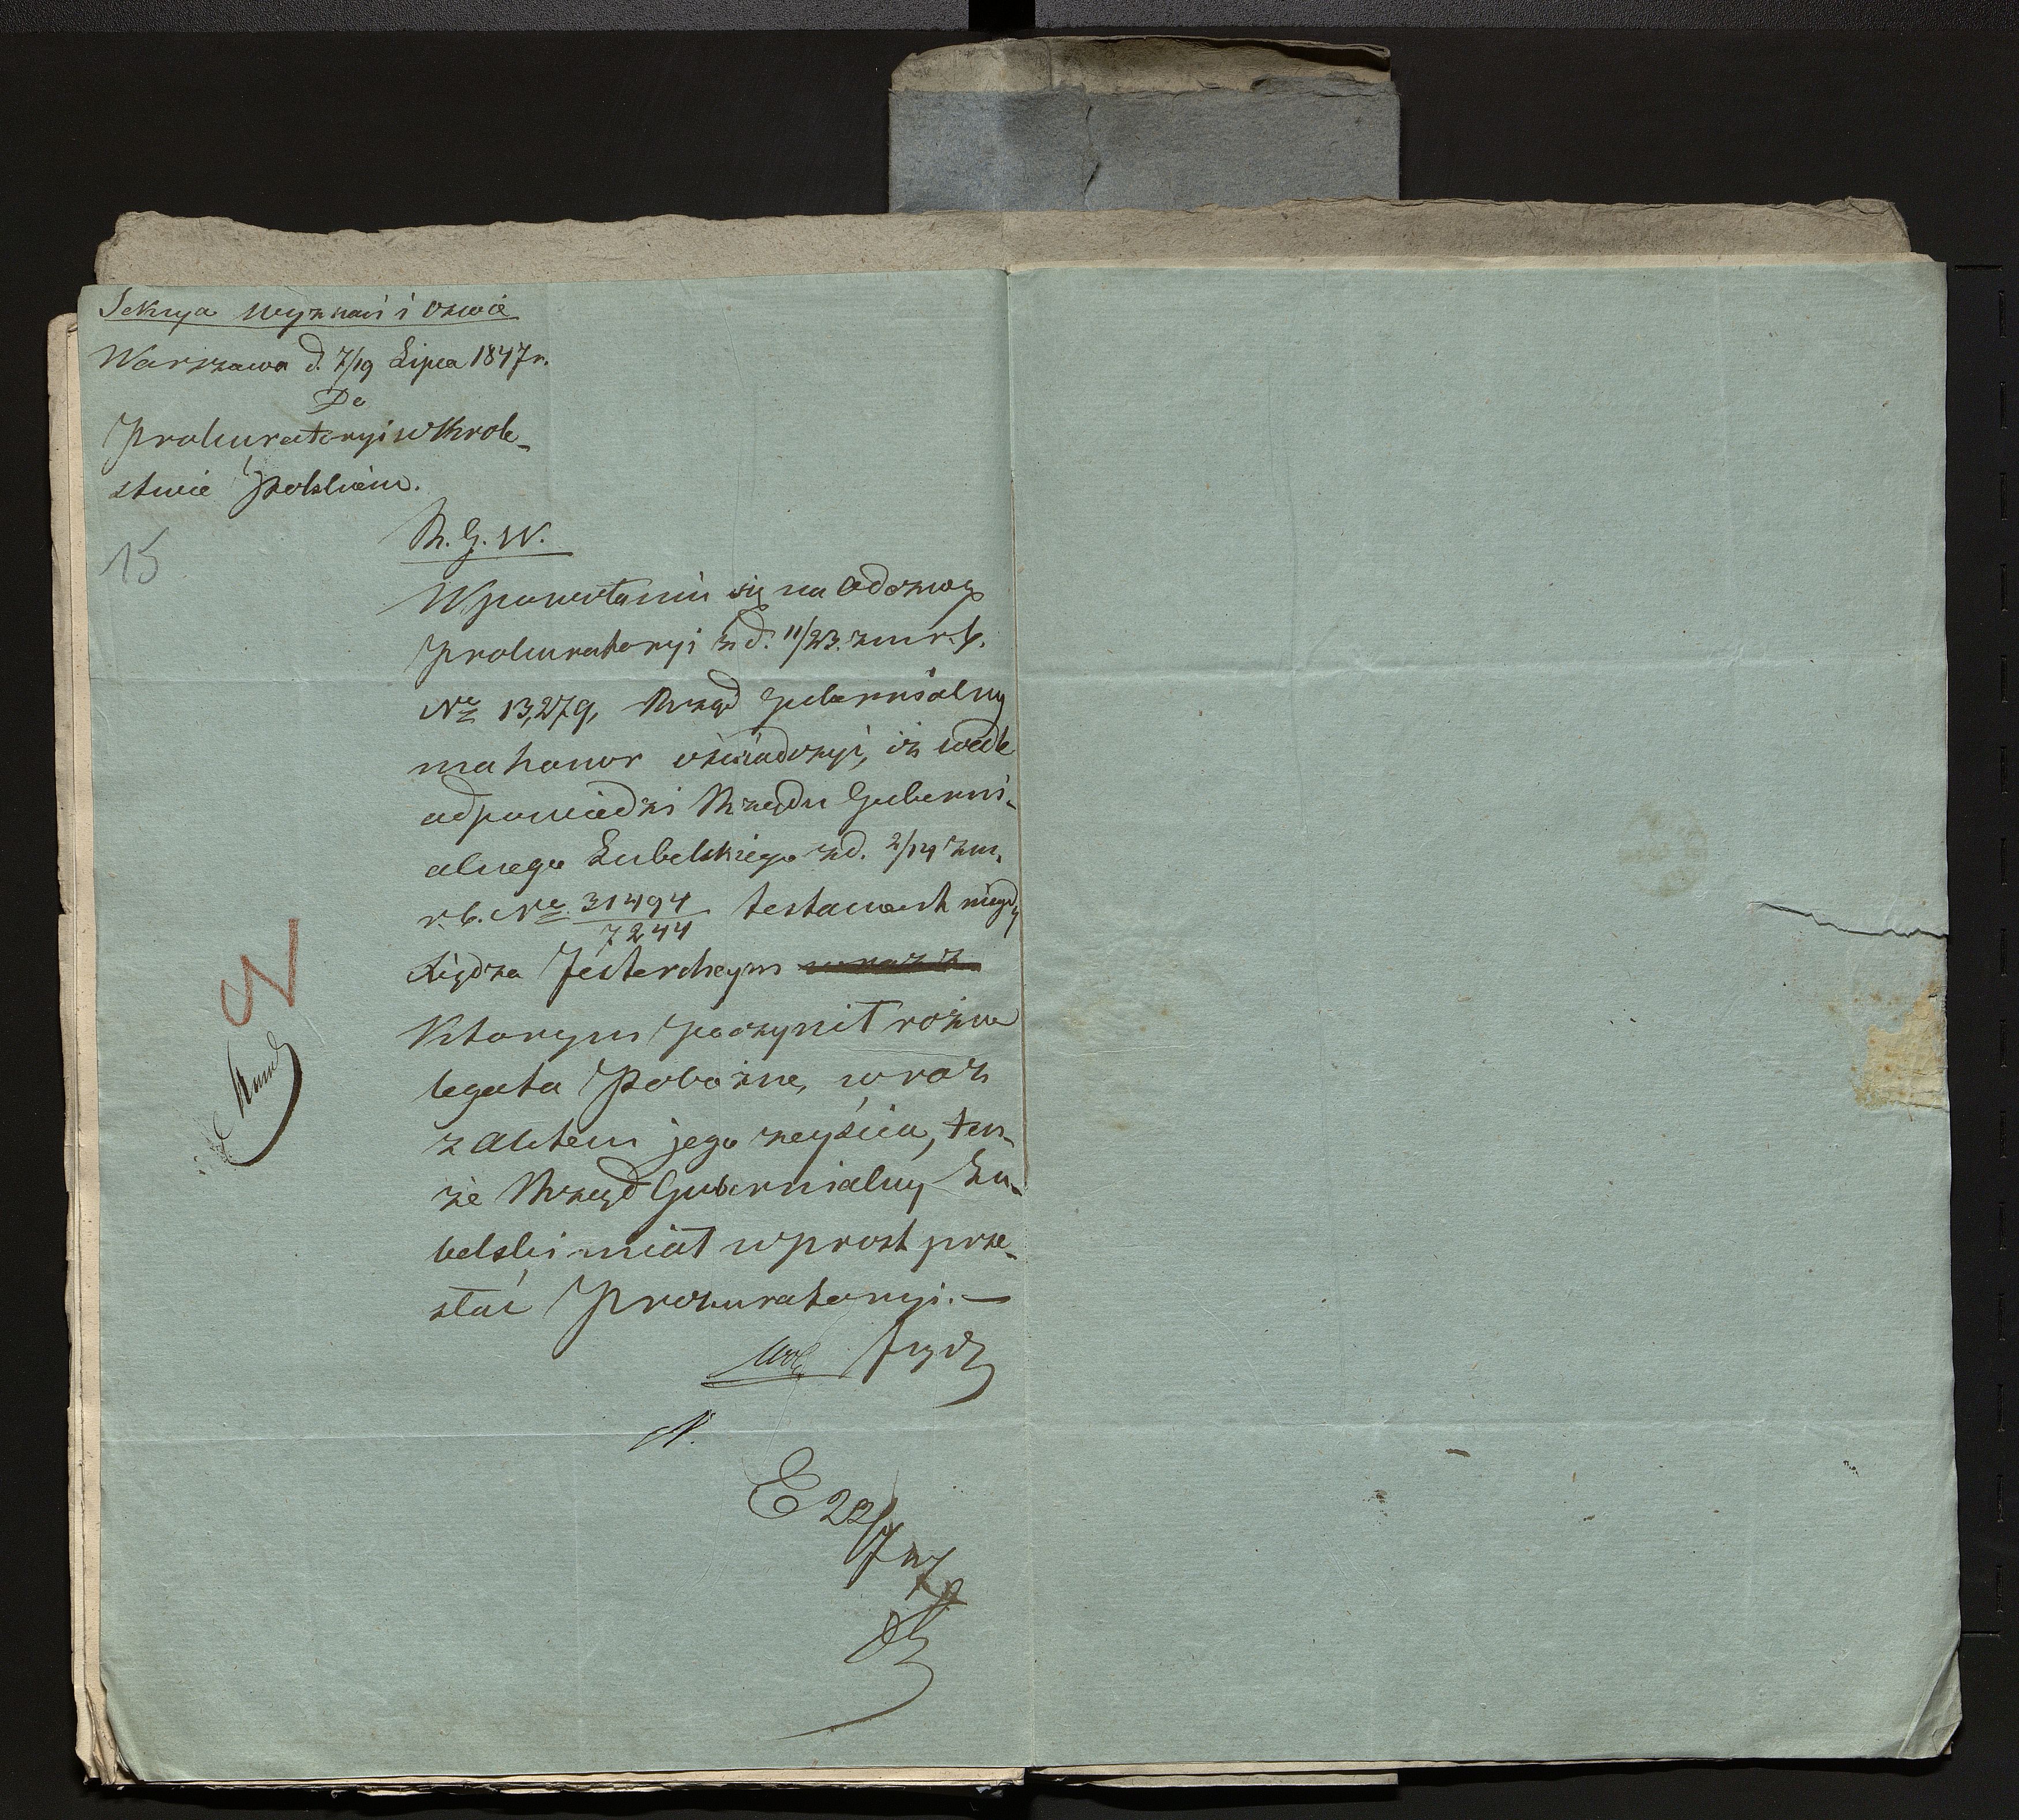 Sekcya Wyznań i Oswie
Warszawa d. 7/19 Lipca 1847 r.
Do
Prokuratoryi w Krole-
stwie Polskiem.
15
R. G. W.
W powołaniu się na odezwę
Prokuratoryi z d. 11/23. zm r. b.
No 13,279, Rząd Gubernialny
ma honor oświadczyć, iż wedle
odpowiedzi Rządu Guberni-
alnego Lubelskiego z d. 2/14 zm.
r. b. No 31494/7244 testament niegdy
Xiędza Jestercheym
Ktorym poczynił rożne
legata Pobożne, wraz
z aktem jego zeyścia, ten-
że Rząd Gubernialny Lu-
belski miał wprost prze-
słać Prokuratoryi. —
N.
E 22/7 47